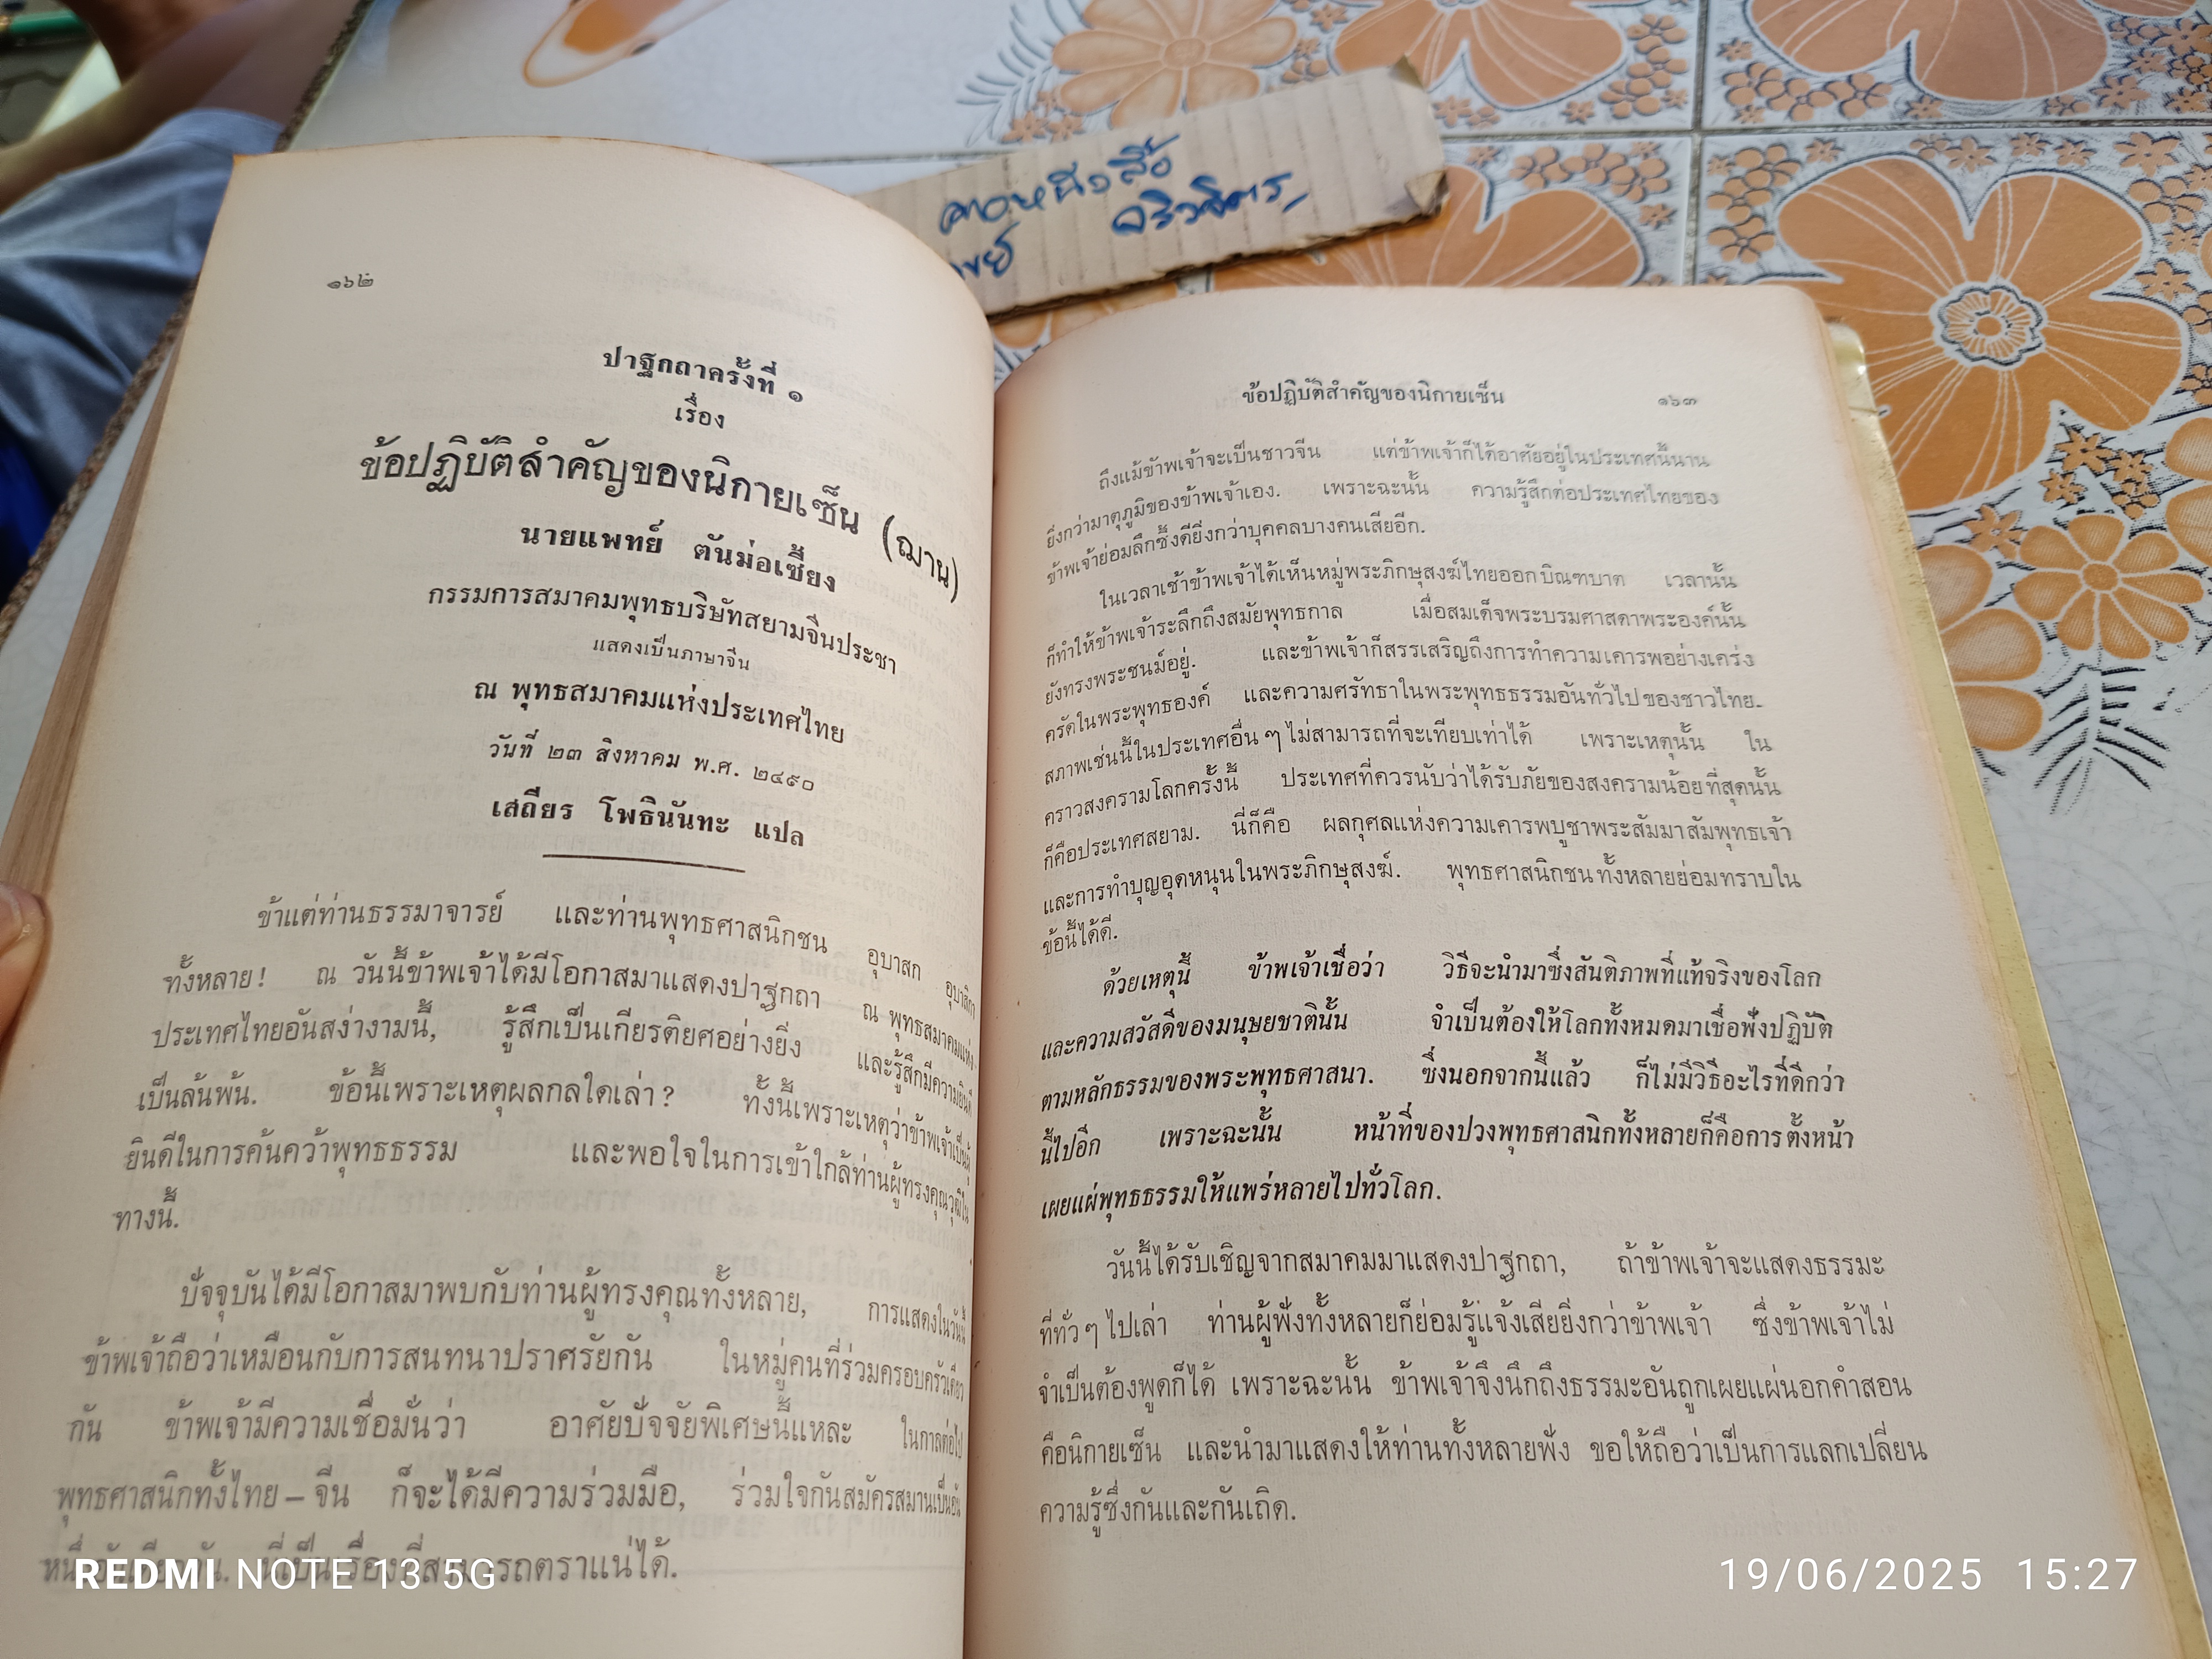 คาวหนังสือ
๑๖๒
ปาฐกถาครั้งที่ ๑
เรื่อง
ข้อปฏิบัติสำคัญของนิกายเซ็น (ฌาน)
นายแพทย์ ตันม่อเซี้ยง
กรรมการสมาคมพุทธบริษัทสยามจีนประชา
แสดงเป็นภาษาจีน
ณ พุทธสมาคมแห่งประเทศไทย
วันที่ ๒๓ สิงหาคม พ.ศ. ๒๔๙๐
เสถียร โพธินันทะ แปล
ข้าแต่ท่านธรรมาจารย์ และท่านพุทธศาสนิกชน อุบาสก อุบาสิกา
ทั้งหลาย! ณ วันนี้ข้าพเจ้าได้มีโอกาสมาแสดงปาฐกถา ณ พุทธสมาคมแห่ง
ประเทศไทยอันสง่างามนี้, รู้สึกเป็นเกียรติยศอย่างยิ่ง และรู้สึกมีความยินดี
เป็นล้นพ้น. ข้อนี้เพราะเหตุผลกลใดเล่า? ทั้งนี้เพราะเหตุว่าข้าพเจ้าเป็นผู้
ยินดีในการค้นคว้าพุทธธรรม และพอใจในการเข้าใกล้ท่านผู้ทรงคุณวุฒิใน
ทางนี้.
ปัจจุบันได้มีโอกาสมาพบกับท่านผู้ทรงคุณทั้งหลาย, การแสดงในวันนี้
ข้าพเจ้าถือว่าเหมือนกับการสนทนาปราศรัยกัน ในหมู่คนที่ร่วมครอบครัวเดียว
กัน ข้าพเจ้ามีความเชื่อมั่นว่า อาศัยปัจจัยพิเศษนี้แหละ ในกาลต่อไป
พุทธศาสนิกทั้งไทย – จีน ก็จะได้มีความร่วมมือ, ร่วมใจกันสมัครสมานเป็นอัน
หนึ่งอันเดียวกัน. นี่เป็นเรื่องที่สามารถตราแน่ได้.
ข้อปฏิบัติสำคัญของนิกายเซ็น ๑๖๓
ถึงแม้ข้าพเจ้าจะเป็นชาวจีน แต่ข้าพเจ้าก็ได้อาศัยอยู่ในประเทศนี้นาน
ยิ่งกว่ามาตุภูมิของข้าพเจ้าเอง. เพราะฉะนั้น ความรู้สึกต่อประเทศไทยของ
ข้าพเจ้าย่อมลึกซึ้งดียิ่งกว่าบุคคลบางคนเสียอีก.
ในเวลาเช้าข้าพเจ้าได้เห็นหมู่พระภิกษุสงฆ์ไทยออกบิณฑบาต เวลานั้น
ก็ทำให้ข้าพเจ้าระลึกถึงสมัยพุทธกาล เมื่อสมเด็จพระบรมศาสดาพระองค์นั้น
ยังทรงพระชนม์อยู่. และข้าพเจ้าก็สรรเสริญถึงการทำความเคารพอย่างเคร่ง
ครัดในพระพุทธองค์ และความศรัทธาในพระพุทธธรรมอันทั่วไปของชาวไทย.
สภาพเช่นนี้ในประเทศอื่น ๆ ไม่สามารถที่จะเทียบเท่าได้ เพราะเหตุนั้น ใน
คราวสงครามโลกครั้งนี้ ประเทศที่ควรนับว่าได้รับภัยของสงครามน้อยที่สุดนั้น
ก็คือประเทศสยาม. นี่ก็คือ ผลกุศลแห่งความเคารพบูชาพระสัมมาสัมพุทธเจ้า
และการทำบุญอุดหนุนในพระภิกษุสงฆ์. พุทธศาสนิกชนทั้งหลายย่อมทราบใน
ข้อนี้ได้ดี.
ด้วยเหตุนี้ ข้าพเจ้าเชื่อว่า วิธีจะนำมาซึ่งสันติภาพที่แท้จริงของโลก
และความสวัสดีของมนุษยชาตินั้น จำเป็นต้องให้โลกทั้งหมดมาเชื่อฟังปฏิบัติ
ตามหลักธรรมของพระพุทธศาสนา. ซึ่งนอกจากนี้แล้ว ก็ไม่มีวิธีอะไรที่ดีกว่า
นี้ไปอีก เพราะฉะนั้น หน้าที่ของปวงพุทธศาสนิกทั้งหลายก็คือการตั้งหน้า
เผยแผ่พุทธธรรมให้แพร่หลายไปทั่วโลก.
วันนี้ได้รับเชิญจากสมาคมมาแสดงปาฐกถา, ถ้าข้าพเจ้าจะแสดงธรรมะ
ที่ทั่ว ๆ ไปเล่า ท่านผู้ฟังทั้งหลายก็ย่อมรู้แจ้งเสียยิ่งกว่าข้าพเจ้า ซึ่งข้าพเจ้าไม่
จำเป็นต้องพูดก็ได้ เพราะฉะนั้น ข้าพเจ้าจึงนึกถึงธรรมะอันถูกเผยแผ่นอกคำสอน
คือนิกายเซ็น และนำมาแสดงให้ท่านทั้งหลายฟัง ขอให้ถือว่าเป็นการแลกเปลี่ยน
ความรู้ซึ่งกันและกันเถิด.
REDMI NOTE 13 5G
19/06/2025 15:27